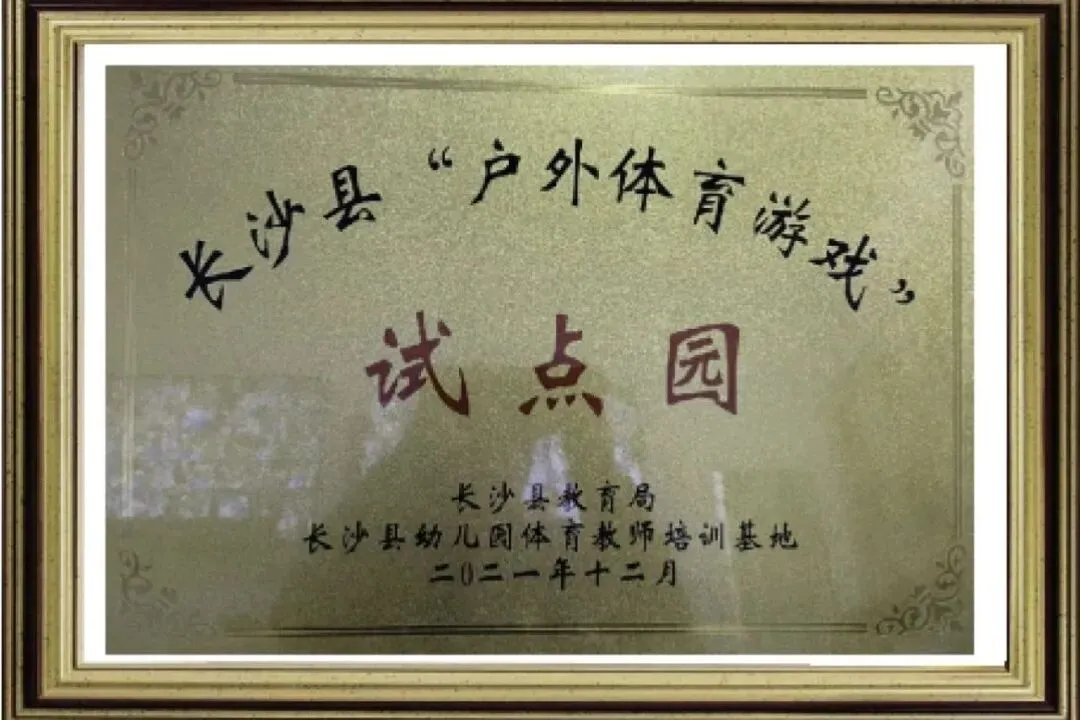 长沙县“户外体育游戏”
试点园
长沙县教育局
长沙县幼儿园体育教师培训基地
二0二一年十二月